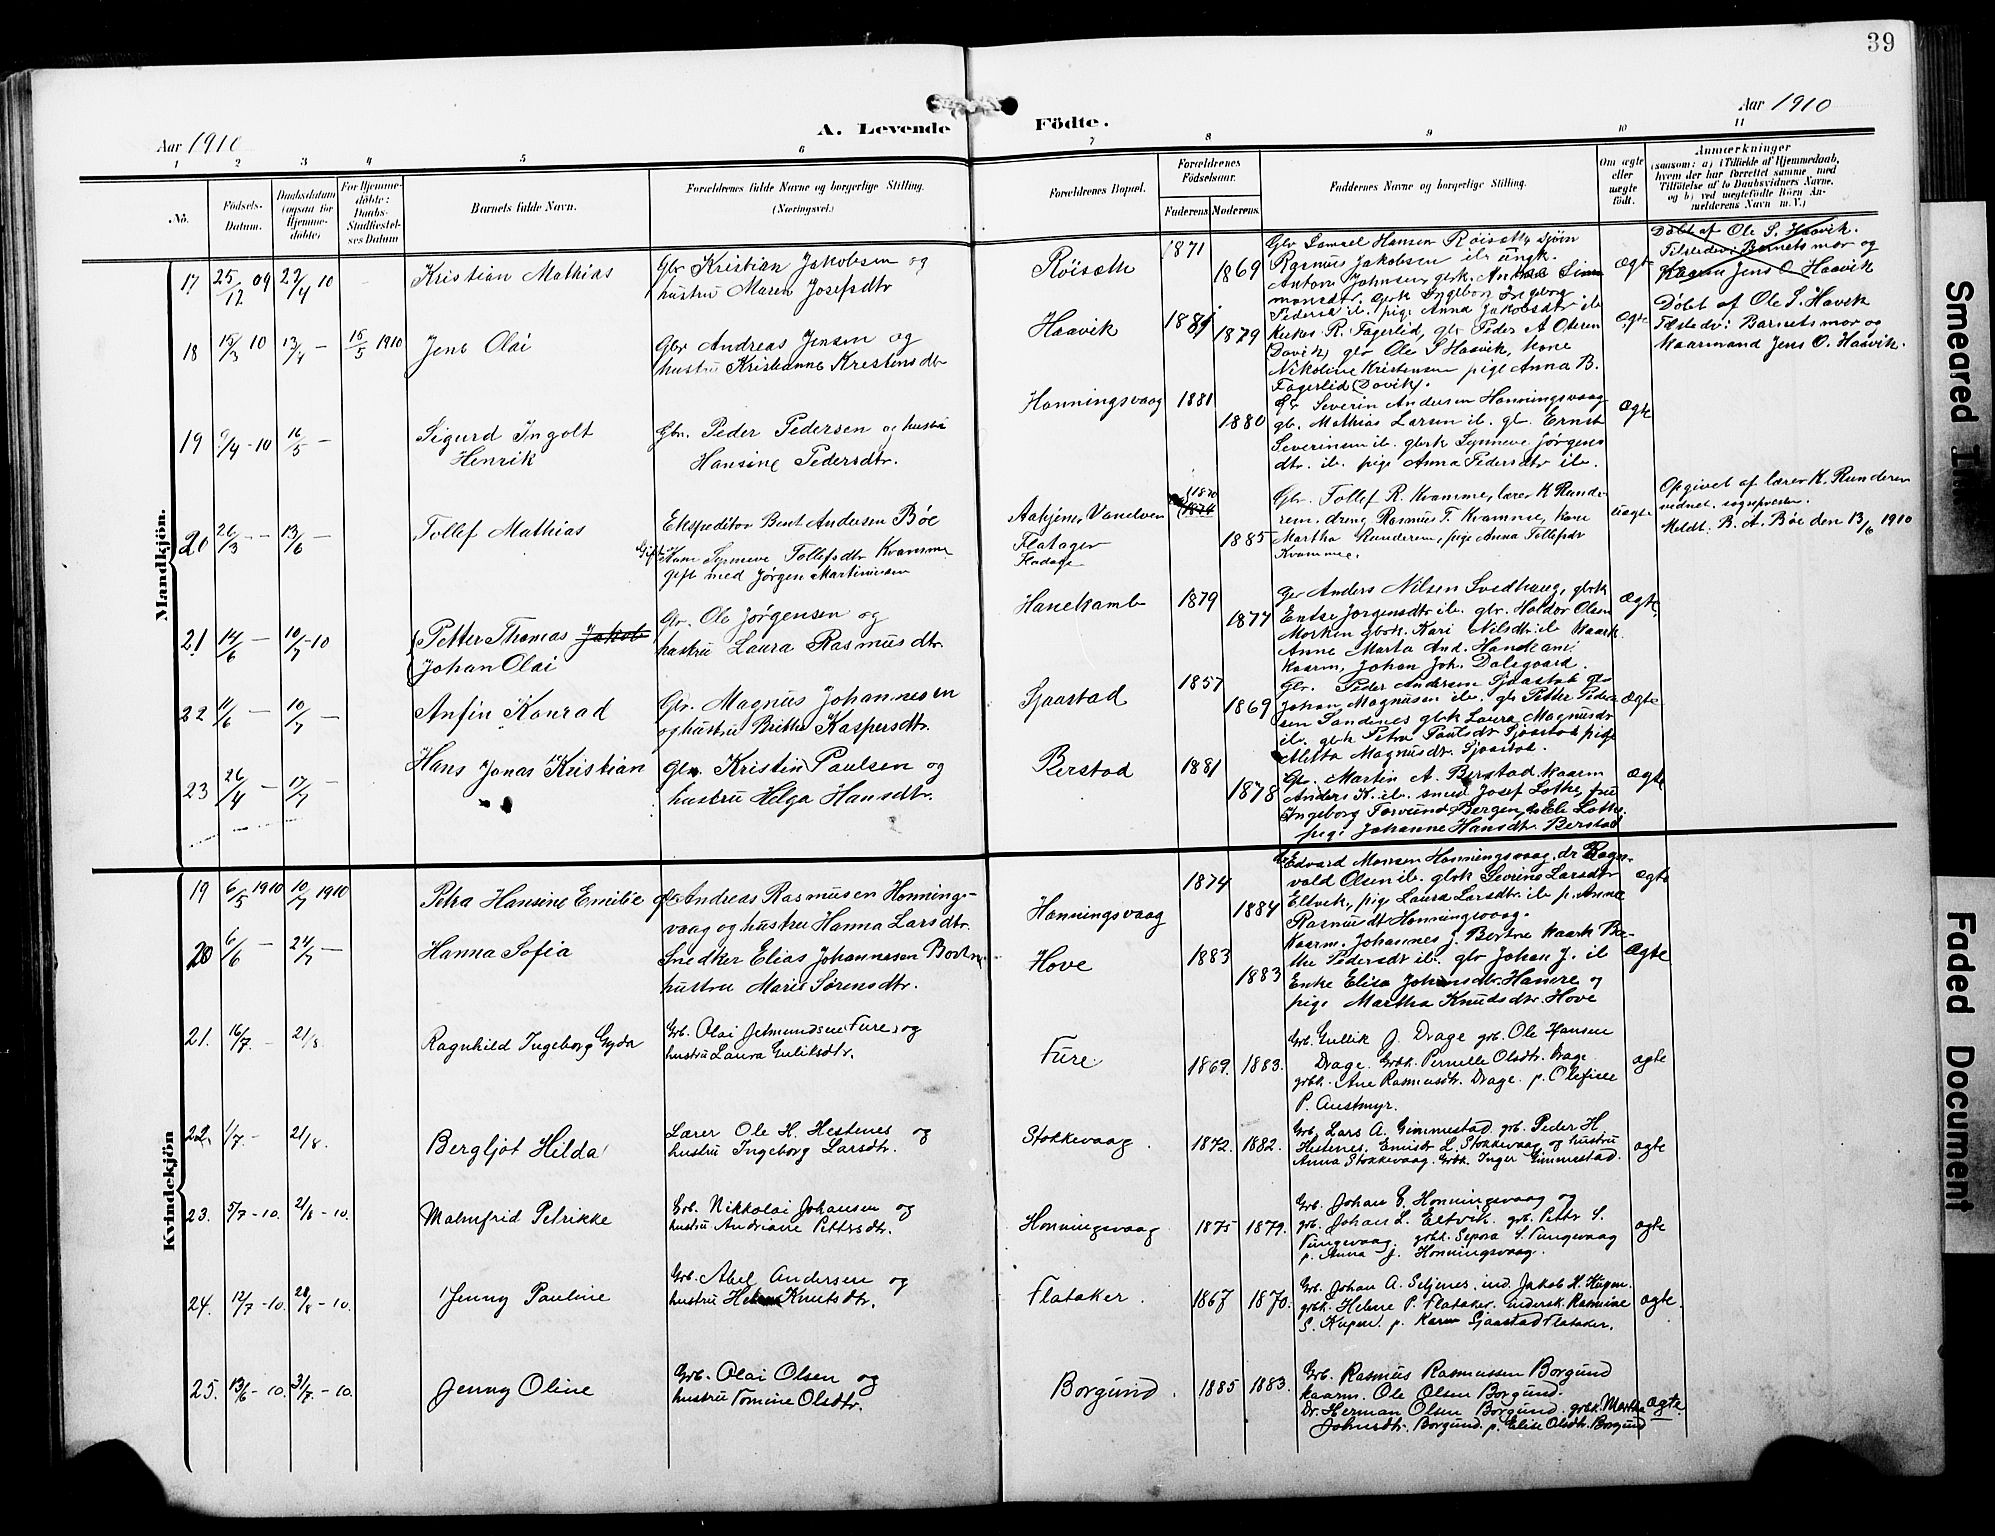 39
Aar 1910
A. Levende
Födte.
Aar 1910
1 2 3 4 5 6 7 8 9 10 11
No.
Födsels-
Datum.
Daabsdatum
(ogsaa for
Hjemme-
döbte)
For Hjemme-
döbte:
Daabs-
Stadfæstel-
ses Datum
Barnets fulde Navn.
Forældrenes fulde Navne og borgerlige Stilling.
(Næringsvei.)
Forældrenes Bopæl.
Forældrenes
Födselsaar.
Faderens.
Moderens.
Faddernes Navne og borgerlige Stilling.
Om ægte
eller
uægte
födt.
Anmærkninger
(saasom: a) i Tilfælde af Hjemmedaab,
hvem der har forrettet samme med
Tilföielse af to Daabsvidners Navne,
og b) ved uægtefödte Börn An-
melderens Navn m. V.)
Mandkjön.
17 25/12 09 27/4 10
Kristian Mathias
Gbr Kristian Jakobsen og
hustru Maren Josefsdtr
Röiseth
1871
1869
Gbr Samuel Hansen Röiseth,
Rasmus Jakobsen ib ungk.
Anton Johnsen,
Pedersd ib. pige Anna Jakobsdtr ib
ægte
Döbt af Ole S. Haavik.
Tilstedv: Barnets mor og
Kaarm Jens O Haavik
18 15/3 10 13/4 — 15/5 1910
Jens Olai
Gbr Andreas Jensen og
hustru Kristianne Krestensdtr
Haavik
1881
1879
R. Fagerlid, gbr Peder A Olsen
(Davik) gbr Ole S Haavik, kone
Nikoline Kristensen pige Anna B.
Fagerlid (Davik).
ægte
Döbt af Ole S. Haavik
Tilstedv: Barnets mor og
Kaarmand Jens O. Haavik.
19 9/4 - 10 16/5 —
Sigurd Ingolt
Henrik
Gbr. Peder Pedersen og hustru
Hansine Pedersdtr.
Honningsvaag
1881
1880
Gbr Severin Andersen Honningsvaag
gb. Mathias Larsen ib. gb. Ernst
Severinsen ib. gbrk Synneve Jørgens
dtr. ib. pige Anna Pedersdtr ib.
ægte
20 26/3 - - 13/6 —
Tollef Mathias
Ekspeditör Bent Andersen Böe
Synneve Tollefsdtr Kvamme
gift med Jørgen Martinusen
Aahjem, Vanelven
Flatager
1870
1874
1885
Gbr. Tollef R. Kvamme, lærer K Runde-
rem, dreng Rasmus T. Kvamme, kone
Martha Runderem, pige Anna Tollefsdr
Kvamme.
uægte
Opgivet af lærer K. Runderem
vednet. sognepresten.
Meldt. B. A. Böe den 13/6 1910
21 14/6 — 10/7 - 10
Petter Thomas Jakob
Johan Olai
Gr. Ole Jørgensen og
hustru Laura Rasmusdtr
Hanekamb
1879
1877
Gbr Anders Nilsen Svedhaug, gbrk
Entse Jorgensdtr ib. gbr. Haldor Olsen
Morken gbrk. Kari Nilsdtr. ib kaark.
Anne Marta And. Hanekam
kaarm, Johan Joh. Dalsgaard.
Ægte,
22 11/6 — 10/7 —
Anfin Konrad
Gbr. Magnus Johannesen
og hustru Brithe Kaspersdtr.
Sjaastad
1857
1869
Gbr. Peder Andersen Sjaastad gbr
Johan Magnusen ib. gbr Petter Peder
sen Sandenes gbrk Laura Magnusdtr
ib. gbrk Petra Paulsdr Sjaastad pige
Aletta Magnusdtr. Sjaastad.
Ægte
23 26/4 — 17/7 —
Hans Jonas Kristian
Gbr. Kristin Paulsen og
hustru Helga Hansdtr.
Berstad
1881
1878
Gbr. Martin A. Berstad, kaarm
Anders K. ib. smed Josef Lothe, fru
Ingeborg Bergen, Lothe
pige Johanne Hansdtr. Berstad
Ægte
Kvindekjön
19 6/5 1910 10/7 1910
Petra Hansine Emilie
gbr Andreas Rasmusen Honning-
vaag og hustru Hanna Larsdtr.
Honningsvaag
1874
1884
Edvard Monsen Honningsvaag, dr Ragn-
vald Olsen ib. gbrk Severine Larsdtr
Eltvik, pige Laura Larsdtr. ib p. Anna
Rasmusdt Honningsvaag.
Ægte
20 6/6 — 24/7 —
Hanna Sofia
Snedker Elias Johannesen Bortne
hustru Marie Sørensdtr.
Hove
1883
1883
Kaarm. Johannes J. Bortne kaark Be-
the Pedersdtr ib. gbr Johan J. ib
Enke Elisa Johansdtr. Hamre og
pige Martha Knudsdtr. Hove
Ægte
21. 16/7. - 21/8.
Ragnhild Ingeborg Gyda
Grb. Olai Jetmundsen Fure, og
hustru Laura Guliksdtr.
Fure
1869. 1883.
Grb. Gullik J. Drage grb. Ole Hansen
Drage. Grbk. Pernille Olsdtr. Drage
grbk. Ane Rasmusdtr. Drage. p. Olefine
P. Austmyr.
ægte
22. 1/7. - 21/8.
Bergljot Hilda
Lærer Ole H. Hestenes og
hustru Ingeborg Larsdtr.
Stokkevaag.
1872. 1882.
Grb. Lars A. Gimmestad. grb. Peder H.
Hestenes. L. Stokkevaag og hustru
Anna Stokkevaag. Grbk. Inger Gimmestad.
ægte
23. 5/7 - 10. 21/8 - 10.
Malmfrid Petrikke
Grb. Nikkolai Johansen og
hustru Andriane Pettersdtr.
Honningsvaag
1875 1879.
Grb. Johan E. Honningsvaag og
grb. Johan L. Eltvik. grb. Petter S.
Tungevaag. grbk. Sepora S. Tungevaag
p. Anna J. Honningsvaag.
ægte
24. 12/7 - 10. 28/8 - 10.
Jenny Pauline
Grb. Abel Andersen og
hustru Knutsdtr.
Flataker.
1867 1870.
Grb. Johan A. Seljenes. ind. Jakob H. Kupen.
grbk. Helene P. Flataker. indersk. Rasmine
S. Kupen. p. Karen Sjaastad Flataker.
ægte.
25. 13/6 - 10. 31/7. - 10.
Jenny Oline
Grb. Olai Olsen og
hustru Tomine Olsdtr.
Borgund.
1885 1883.
Grb. Rasmus Rasmussen Borgund
kaarm. Ole Olsen Borgund.
Dr. Herman Olsen Borgund. grbk. Martha
Johnsdtr. Borgund. p. Elise Olsdtr. Borgund
ægte.
Smeared
Faded Document